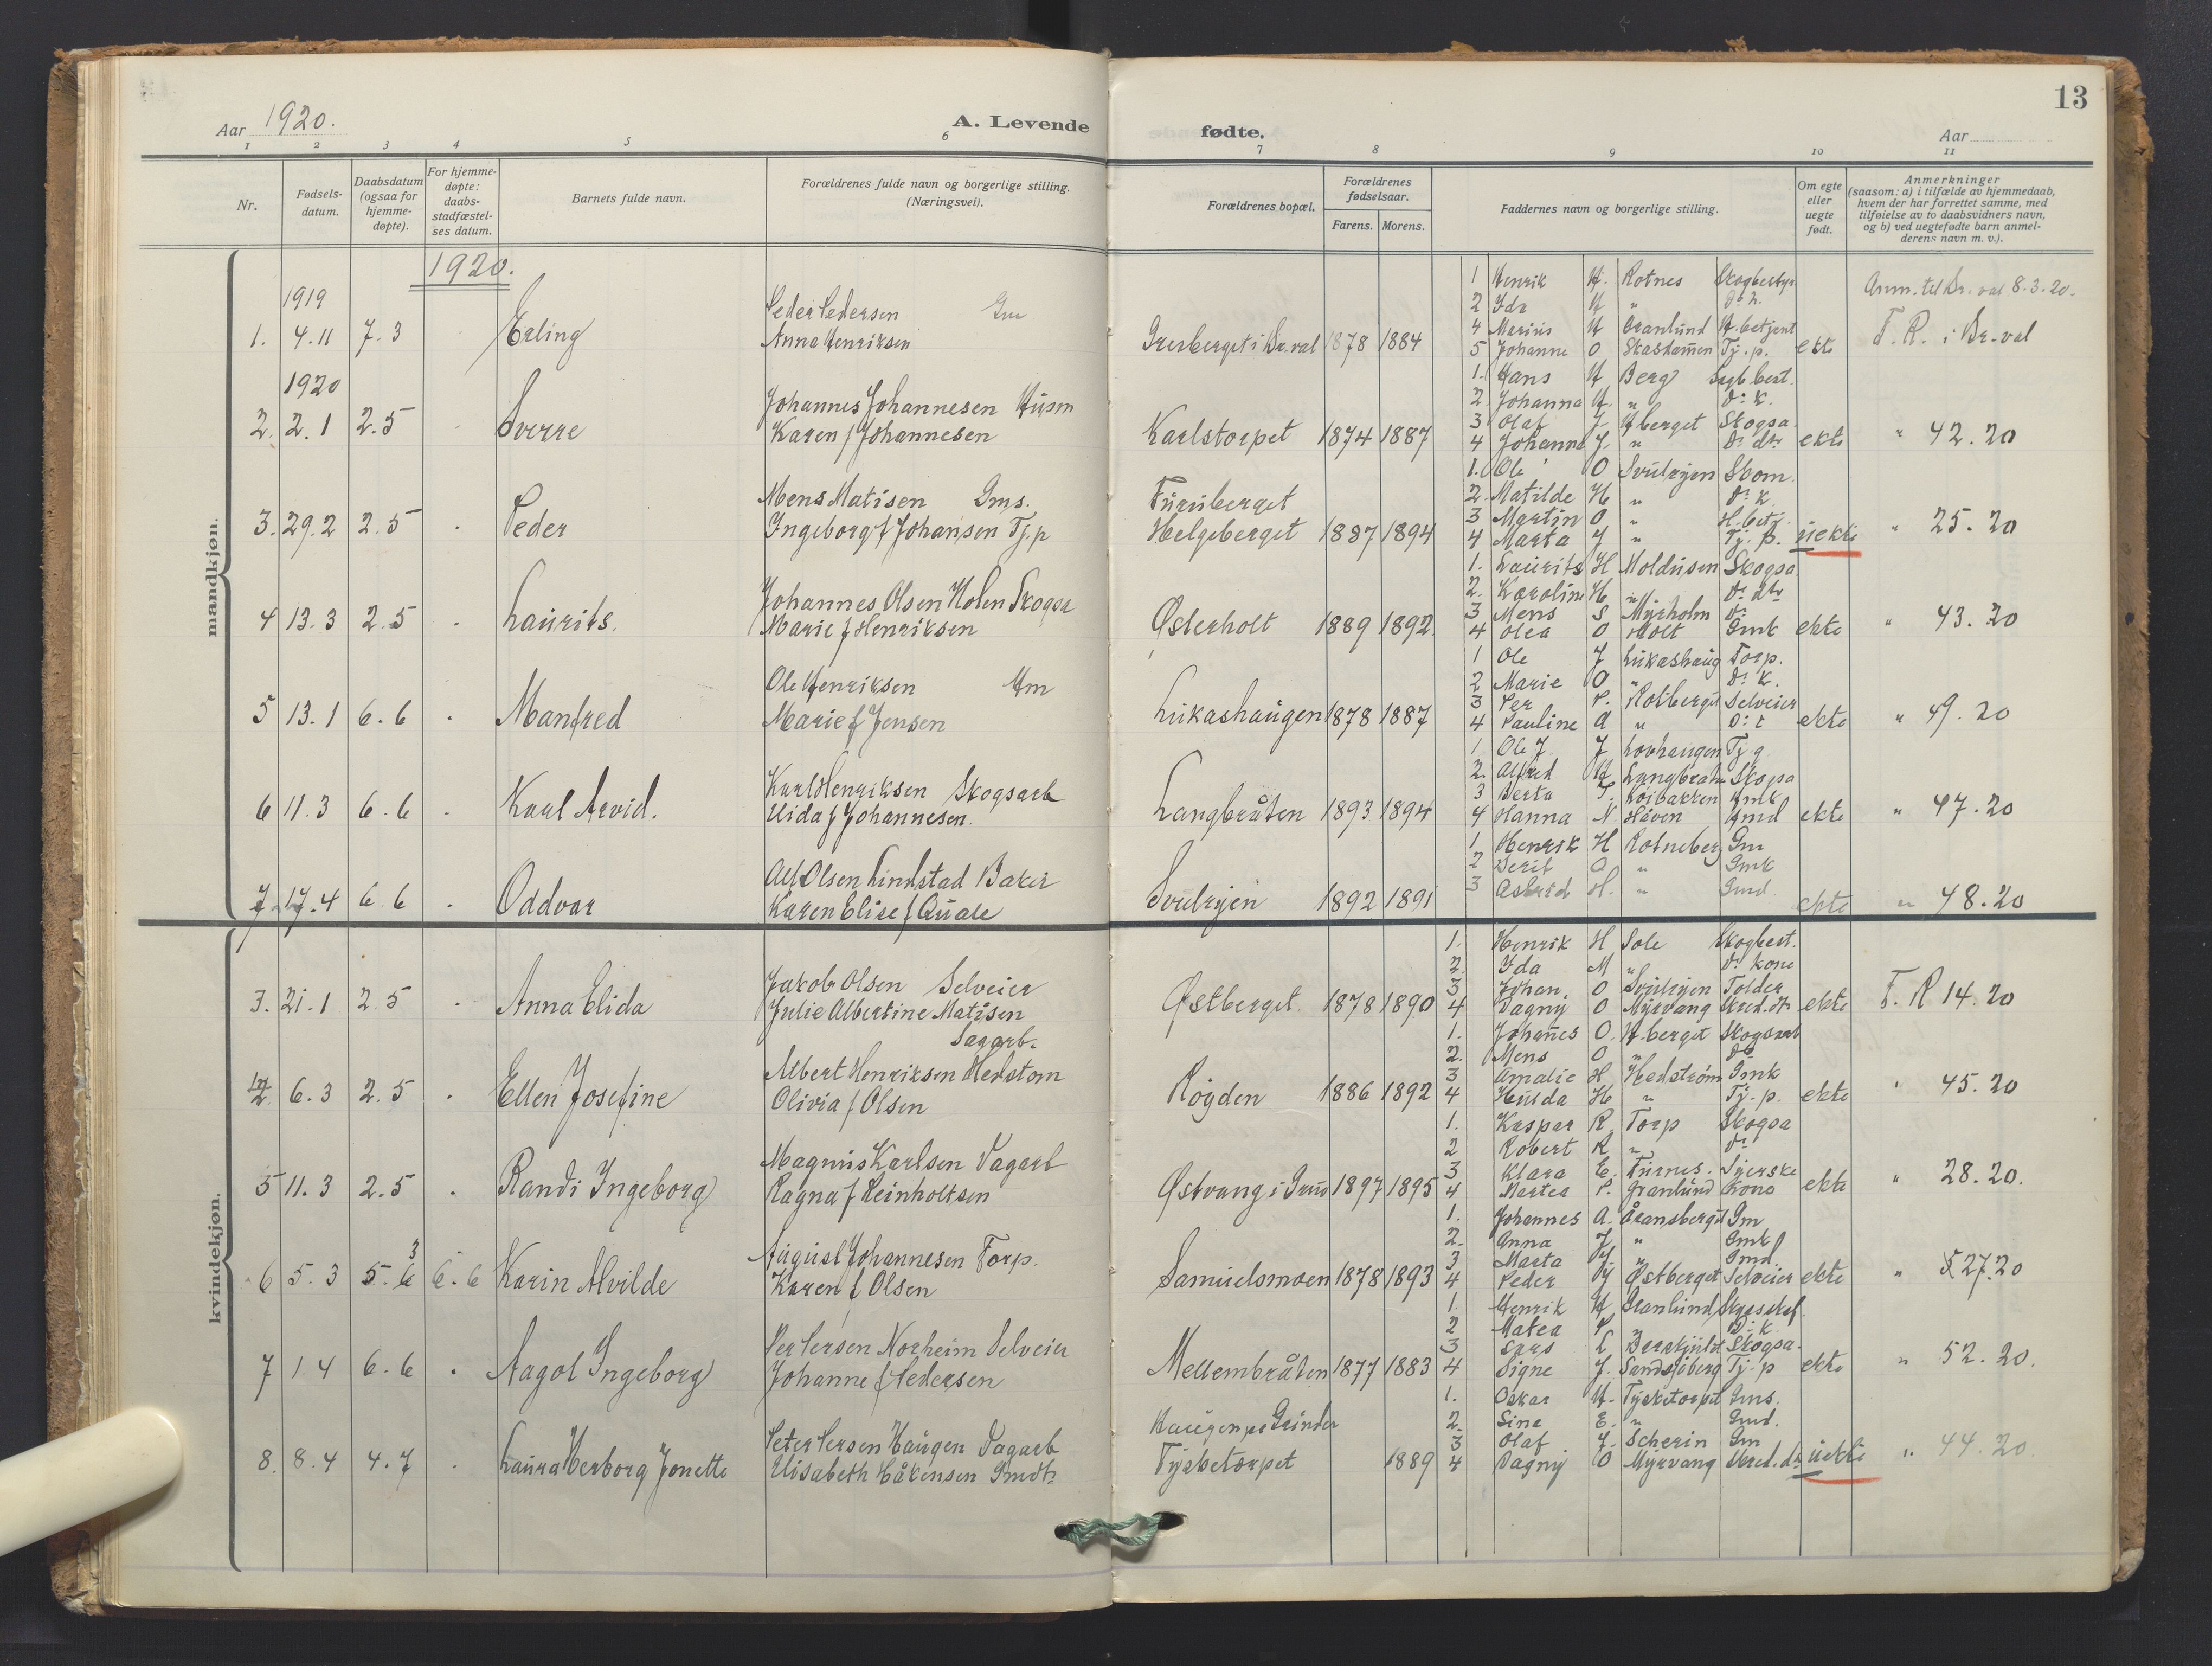 13
Aar 1920.
A. Levende fødte.
Aar
1 2 3 4 5 6 7 8 9 10 11
Nr.
Fødsels-datum.
Daabsdatum (ogsaa for hjemme-døpte).
For hjemme-døpte: daabs-stadfæstel-ses datum.
Barnets fulde navn.
Forældrenes fulde navn og borgerlige stilling. (Næringsvei).
Forældrenes bopæl.
Forældrenes fødselsaar.
Farens. Morens.
Faddernes navn og borgerlige stilling.
Om egte eller uegte født.
Anmerkninger (saasom: a) i tilfælde av hjemmedaab, hvem der har forrettet samme, med tilføielse av to daabsvidners navn, og b) ved uegtefødte barn anmel-derens navn m. v.).
mandkjøn.
1920.
1919
1. 4.11 7.3 Erling
Peder Pedersen Gm
Anna Henriksen
i Br.val 1878 1884
1 Henrik H. Rotnes Skogbestyr
2 Ida H " D: k.
4 Marius H Granlund H.betjent
5 Johanne O Tj.p. ekte
Anm. til Br. val 8.3.20.
F. R. i Br.val
1920
2. 2.1 2.5 Sverre
Johannes Johannesen Husm
Karen f Johannesen
Karlstorpet 1874 1887
1. Hans H Berg Sagb best.
2. Johanna H. " D: k.
3 Olaf J. H berget Skogsa
4 Johanne J. " D: dtr ekte
" 42.20
3. 29.2 2.5 Peder
Mens Matisen Gms.
Ingeborg f Johansen Tj.p
Furuberget
Helgeberget 1887 1894
1. Ole O Svulryen Skom.
2. Matilde H " D: k.
3 Martin O " H.betj.
4 Marta J " Tj. p. uekte
" 25.20
4 13.3 2.5 Laurits.
Johannes Olsen Holen Skogsa
Marie f Henriksen
Østerholt 1889 1892
1. Laurits H Moldusen Skogsa
2. Karoline H " D: dtr
3 Mens S Myrholm D:
4 Olea O Holt Gmk ekte
" 43.20
5 13.1 6.6 Manfred
Ole Henriksen Hm
Marie f Jensen
Lukashaugen 1878 1887
1 Ole J Lukashaug Torp.
2 Marie O " D: k.
3 Per P. Rotberget Selveier
4 Pauline A " D: k ekte
" 49.20
6 11.3 6.6 Karl Arvid.
Karl Henriksen Skogsarb
Uida f Johannesen.
Langbråten 1893 1894
1. Ole J. J Lovhaugen Tj g
2. Alfred H Langbråten Skogsa
3 Berta P. Gmk
4 Hanna N Håven Gmd ekte
" 47.20
7 17.4 6.6 Oddvar
Alf Olsen Lindstad Baker
Karen Elise f Quale
Svulryen 1892 1891
1 Henrik H Rotneberg Gm
2 Berit O " Gmk
3 Astrid H. " Gmd. ekte
" 48.20
kvindekjøn.
3. 21.1 2.5 Anna Elida
Jakob Olsen Selveier
Julie Albertine Matisen
Østberget. 1878 1890
1. Henrik H Sole Skogbest.
2. Ida M " D: kone
3 Johan. O Svulryen Tolder
4 Dagny O Myrvang Skred.dtr ekte
F. R 14.20
4 6.3 2.5 Ellen Josefine
Sagarb.
Albert Henriksen Hedstom
Olivia f Olsen
Røgden 1886 1892
1. Johannes O. H.berget Skogsarb
2. Mens O " D:
3 Amalie H. Hedstrøm Gmk
4 Hulda H " Tj.p. ekte
" 45.20
5 11.3 2.5 Randi Ingeborg
Magnus Karlsen Dagarb
Ragna f Reinholtsen
Østvang i Grue 1897 1895
1. Kaspar R Torp Skogsa
2 Robert R " D:
3 Klara E. Furnes. Syerske
4 Martea P. Granlund Kone ekte
" 28.20.
6 5.3 5.6 3 6.6 Karin Alvilde
August Johannesen Torp.
Karen f Olsen
Samuelsmoen 1878 1893
1. Johannes A. Åransberget Gm
2. Anna J. " Gmk
3 Marta J. " Gmd.
4 Peder M Østberget Selveier ekte
" 27.20
7 1.4 6.6 Aagot Ingeborg
Per Persen Norheim Selveier
Johanne f Pedersen
Mellembråten 1877 1883
1. Henrik H Granlund Skysskaf.
2 Matea P. " D: k.
3 Lars L Skogsa.
4 Signe J. Sandsjøberg Tj.p ekte
" 52.20.
8. 8.4 4.7 Laura Herborg Jonette
Peter Persen Haugen Dagarb
Elisabeth Håkensen Gmdtr
Haugen pr Grinder
Tysketorpet 1889
1. Oskar H. Tysketorpet Gms.
2. Sina E. " Gmd.
3 Olaf J. Scherin Gm
4 Dagny O Myrvang Skred.dtr uekte
" 44.20.